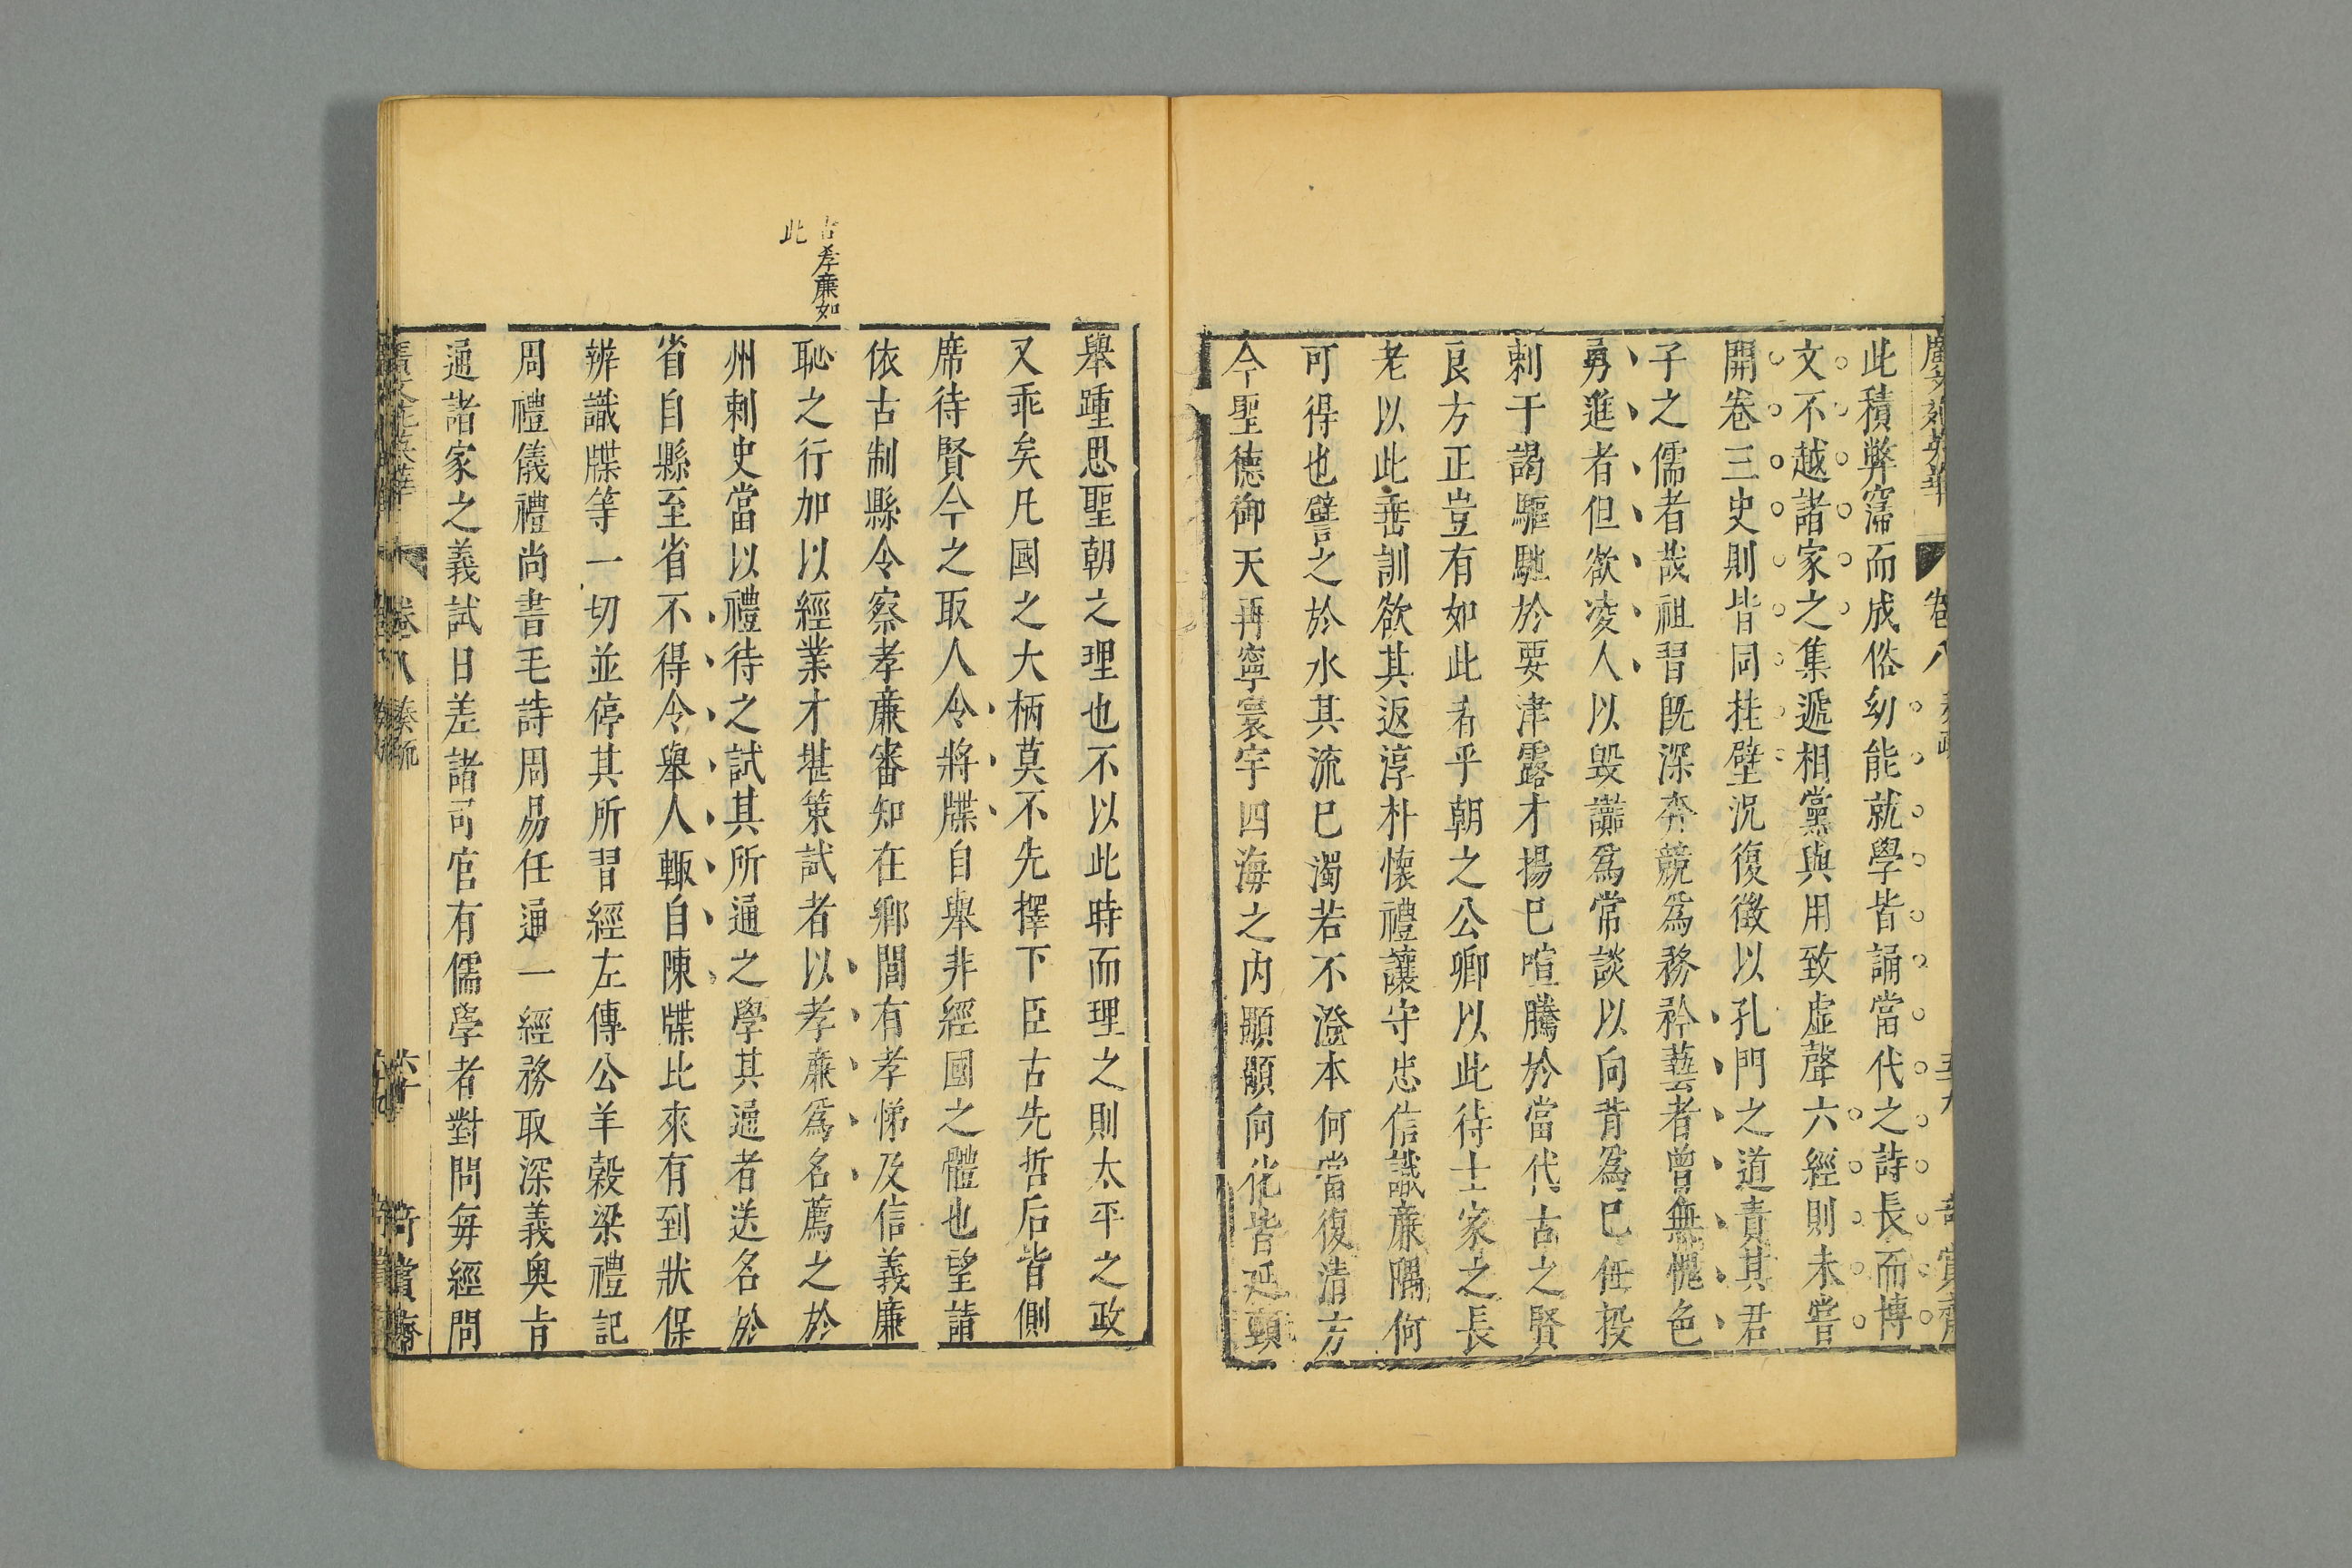 卷八
此積弊寖而成俗幼能就學皆誦當代之詩長而博
文不越諸家之集遞相黨與用致虛聲六經則未嘗
開卷三史則皆同挂壁況復徵以孔門之道責其君
子之儒者哉祖習既深奔競爲務矜藝者曾無愧色
勇進者但欲凌人以毀讟爲常談以向背爲己任投
刺干謁驅馳於要津露才揚已喧騰於當代古之賢
良方正豈有如此者乎朝之公卿以此待士家之長
老以此垂訓欲其返淳朴懷禮讓守忠信識廉隅何
可得也譬之於水其流已濁若不澄本何當復清方
今聖德御天再寧寰宇四海之内顒顒向化皆延頸
舉踵思聖朝之理也不以此時而理之則太平之政
又乖矣凡國之大柄莫不先擇下臣古先哲后皆側
席待賢今之取人令將牒自舉非經國之體也望請
依古制縣令察孝廉審知在鄉閭有孝悌及信義廉
古孝廉如
此
恥之行加以經業才堪策試者以孝廉爲名薦之於
州刺史當以禮待之試其所通之學其通者送名於
省自縣至省不得令舉人輒自陳牒比來有到狀保
辨識牒等一切並停其所習經左傳公羊穀梁禮記
周禮儀禮尚書毛詩周易任通一經務取深義奧旨
通諸家之義試日差諸司官有儒學者對問每經問
卷八